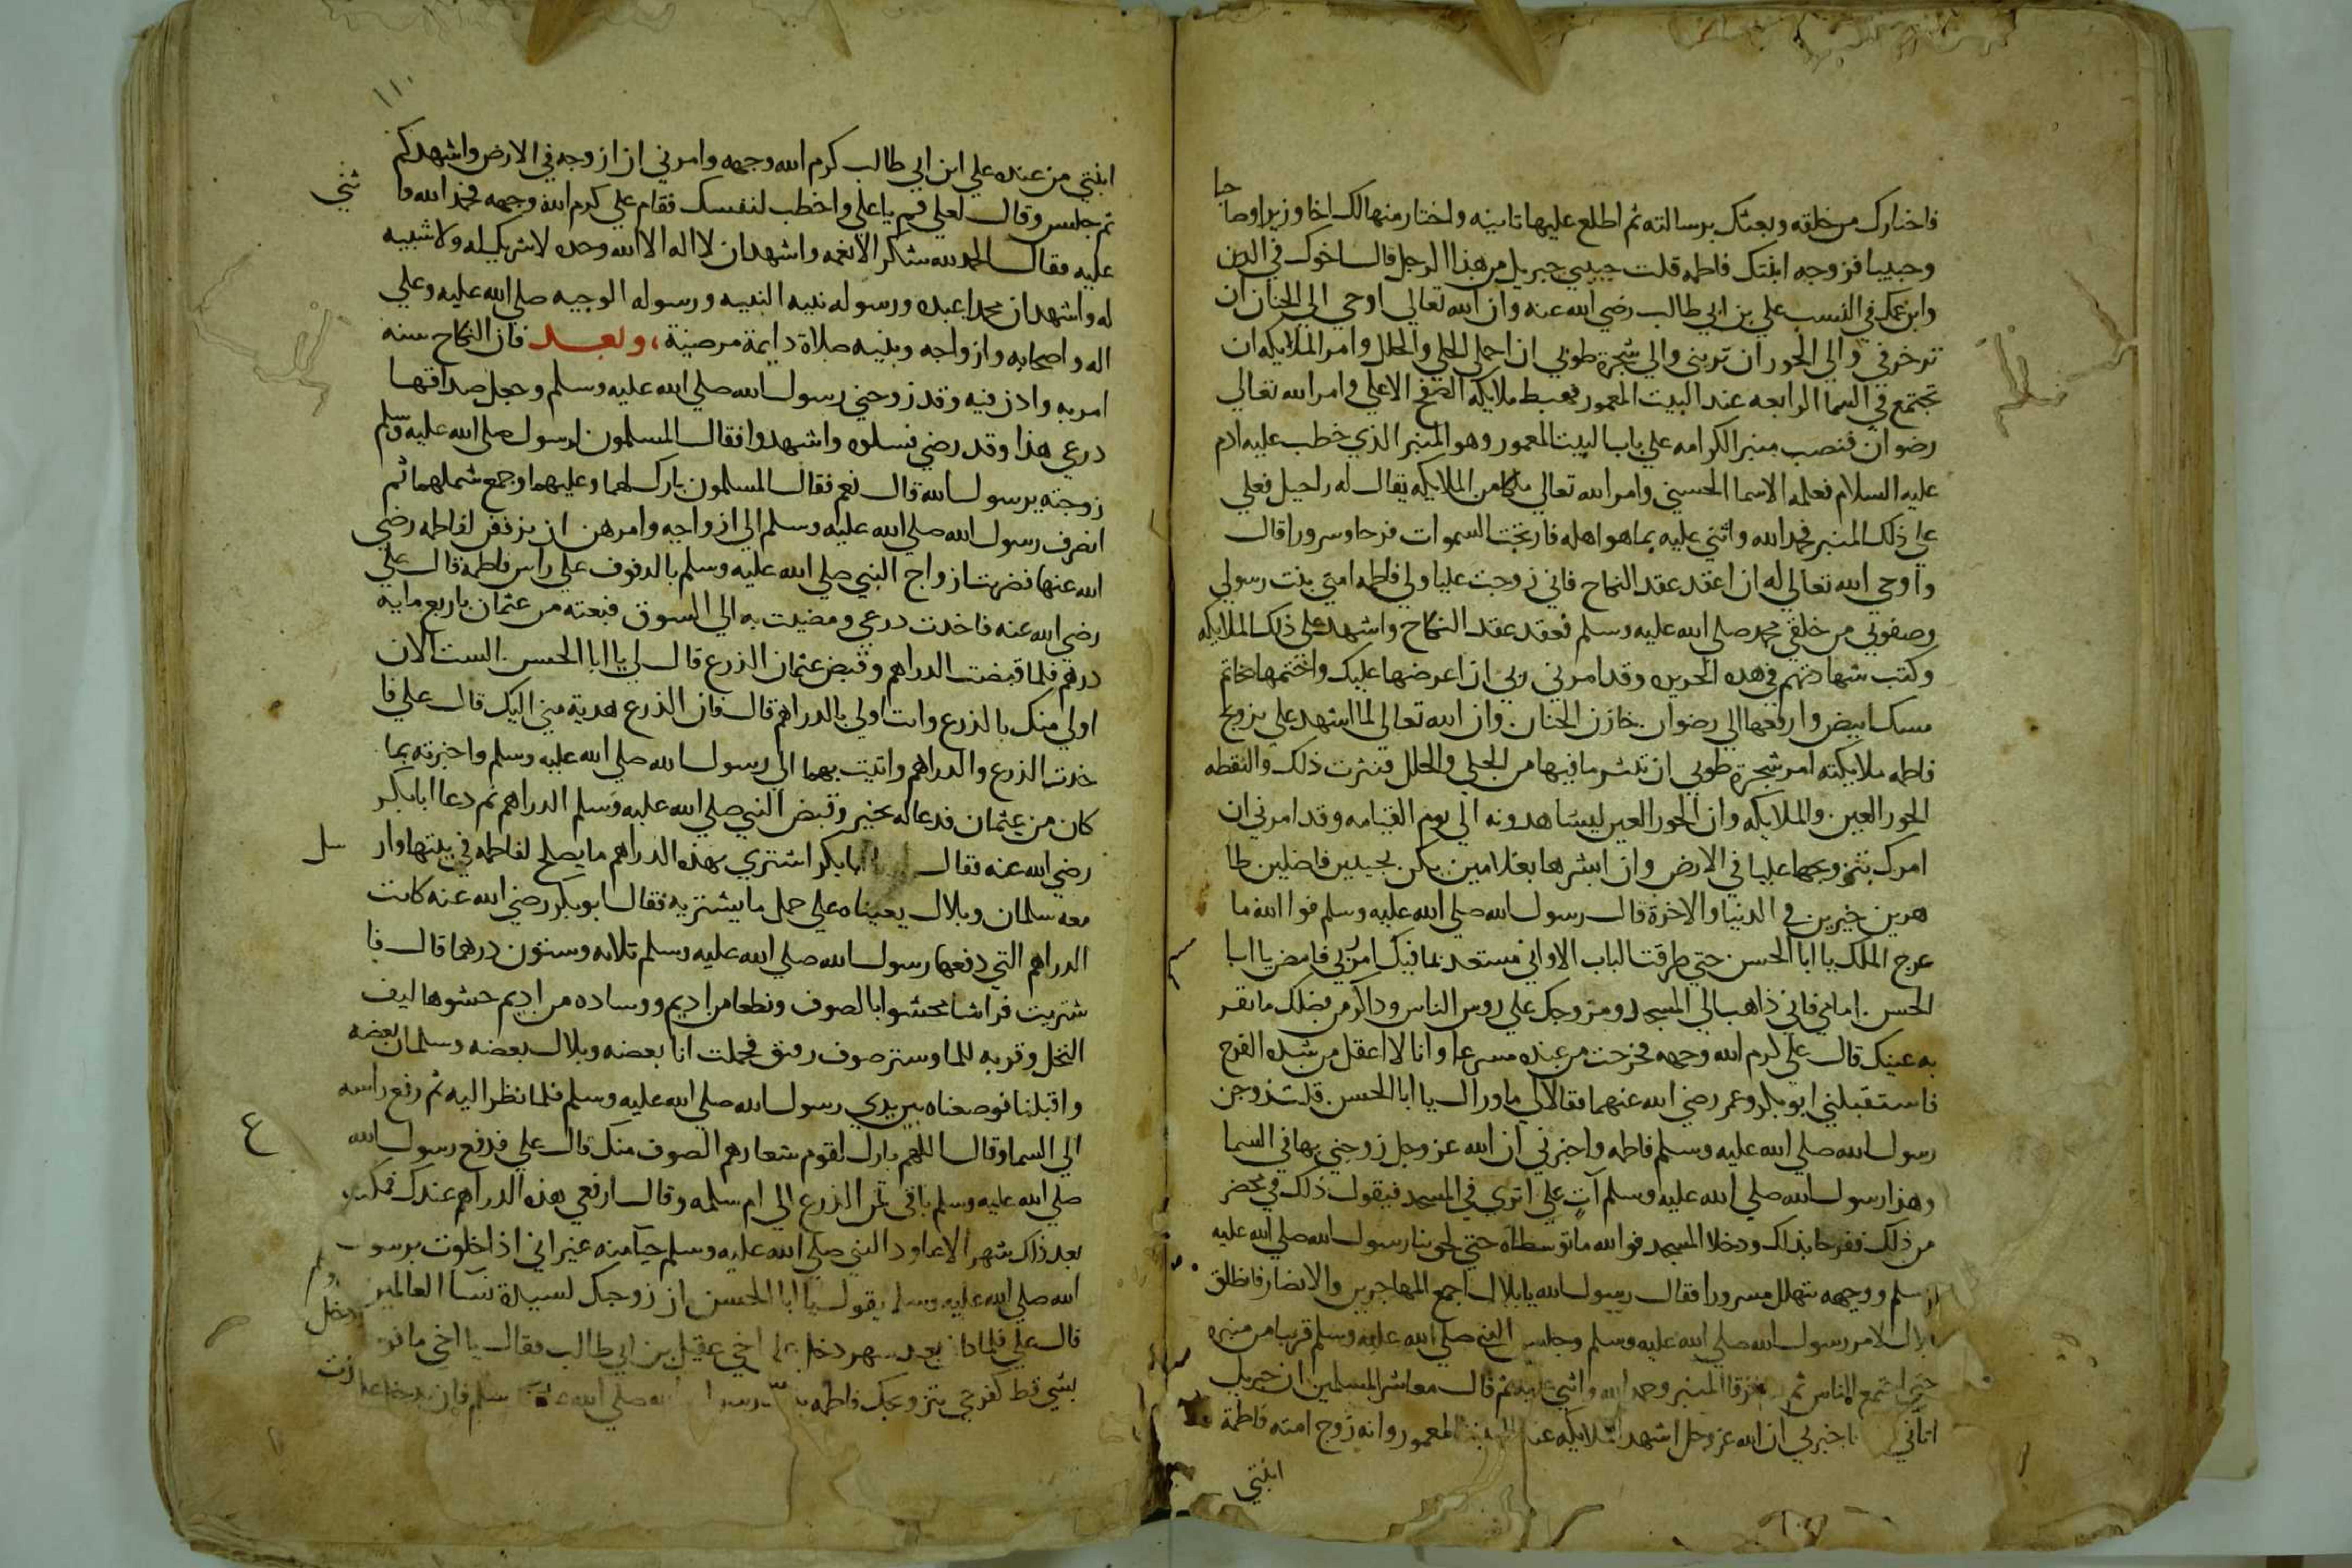 فاختارك من خلقه وبعثك برسالته ثم اطلع عليها ثانيه واختار منها لك اخا وزيرا وصاحبا
وحبيبا فزوجه ابنتك فاطمه قلت حبيبي جبريل من هذا الرجل قال اخوك في الدين
وابن عمك في النسب علي بن ابي طالب رضي الله عنه وان الله تعالي اوحي الي الجنان ان
تزخرفي والي الحور ان تزيني والي شجرة طوبي ان احملي الحلي والحلل وامر الملايكه ان
تجتمع في السما الرابعه عند البيت المعمور فهبط ملايكه الصفح الاعلي وامر الله تعالي
رضوان فنصب منبر الكرامه علي باب البيت المعمور وهو المنبر الذي خطب عليه ادم
عليه السلام فعلمه الاسما الحسني وامر الله تعالي ملكا من الملايكه يقال له راحيل فعلي
علي ذلك المنبر فحمد الله واثني عليه بما هو اهله فارتجت السموات فرحا وسرورا قال
واوحي الله تعالي له ان اعقد عقد النكاح فاني زوجت عليا ولي فاطمه امتي بنت رسولي
وصفوتي من خلقي محمد صلي الله عليه وسلم فعقد عقد النكاح واشهد علي ذلك الملايكه
وكتب شهادتهم في هده الحريره وقد امرني ربي ان اعرضها عليك واختمها بخاتم
مسك ابيض وارفعها الي رضوان خازن الجنان وان الله تعالي لما اشهد علي تزويج
فاطمه ملايكته امر شجرة طوبي ان تنثر ما فيها من الحلي والحلل فنثرت ذلك والتقطه
الحور العين والملايكه وان الحور العين ليشاهدونه الي يوم القيامه وقد امرني ان
امرك بتزويجها عليا في الارض وان ابشرها بغلامين زكيين نجيبين فاضلين طا
هرين خيرين في الدنيا والاخرة قال رسول الله صلي الله عليه وسلم فوالله ما
عرج الملك يا ابا الحسن حتي طرقت الباب الا واني مستعد بما فيك امر ربي فامض يا ابا
الحسن امامي فاني ذاهب الي المسجد ومزوجك علي روس الناس وداكر من فضلك ما تقر
به عينك قال علي كرم الله وجهه فخرجت من عنده مسرعا وانا لا اعقل من شده الفرح
فاستقبلني ابو بكر وعمر رضي الله عنهما فقالا لي ما وراك يا ابا الحسن قلت زوجني
رسول الله صلي الله عليه وسلم فاطمه واخبرني ان الله عز وجل زوجني بها في السما
وهذا رسول الله صلي الله عليه وسلم آت علي اثري في المسجد فيقول ذلك في محضر
من ذلك ففرحا بذلك ودخلا المسجد فوالله ما توسطناه حتي لحق بنا رسول الله صلي الله عليه
وسلم ووجهه يتهلل مسرورا فقال رسول الله يا بلال اجمع المهاجرين والانصار فانطلق
بلال لامر رسول الله صلي الله عليه وسلم وجلس النبي صلي الله عليه وسلم قريبا من منبره
حتي اجتمع الناس ثم رقا المنبر وحمد الله واثني عليه ثم قال معاشر المسلمين ان جبريل
اتاني فاخبرني ان الله عز وجل اشهد الملايكه عند البيت المعمور وانه زوج امته فاطمة
ابنتي
١١٠
ابنتي من عبده علي ابن ابي طالب كرم الله وجهه وامرني ان ازوجه في الارض واشهدكم
ثم جلس وقال لعلي قم يا علي واخطب لنفسك فقام علي كرم الله وجهه فحمد الله وا
ثني
عليه فقال الحمد لله شكرا لانعمه واشهد ان لا اله الا الله وحده لا شريك له ولا شبيه
له واشهد ان محمدا عبده ورسوله نبيه النبيه ورسوله الوجيه صلي الله عليه وعلي
اله واصحابه وازواجه وبنيه صلاة دايمة مرضية، وبعد فان النكاح سنه
امر به واذن فيه وقد زوجني رسول الله صلي الله عليه وسلم وجعل صداقها
درعي هذا وقد رضي فسلوه واشهدوا فقال المسلمون لرسول صلي الله عليه وسلم
زوجته يرسول الله قال نعم فقال المسلمون بارك لهما وعليهما وجمع شملهما ثم
انصرف رسول الله صلي الله عليه وسلم الي ازواجه وامرهن ان يزففن لفاطمه رضي
الله عنها فضربت ازواج النبي صلي الله عليه وسلم بالدفوف علي راس فاطمة قال علي
رضي الله عنه فاخدت درعي ومضيت به الي السوق فبعته من عثمان باربع مايه
درهم فلما قبضت الدراهم وقبض عثمان الدرع قال لي يا ابا الحسن الست الان
اولي منك بالدرع وانت اولي بالدراهم قال فان الدرع هدية مني اليك قال علي فا
خدت الدرع والدراهم واتيت بهما الي رسول الله صلي الله عليه وسلم واخبرته بما
كان من عثمان فدعا له بخير وقبض النبي صلي الله عليه وسلم الدراهم ثم دعا ابا بكر
رضي الله عنه فقال يا ابا بكر اشتري بهذه الدراهم ما يصلح لفاطمه في بيتها وار
سل
معه سلمان وبلال يعيناه علي حمل ما يشتريه فقال ابو بكر رضي الله عنه كانت
الدراهم التي دفعها رسول الله صلي الله عليه وسلم ثلاثه وستون درهما قال فا
شتريت فراشا محشوا بالصوف ونطعا من اديم ووساده من اديم حشوها ليف
النخل وقربه للما وستر صوف رقيق فحملت انا بعضه وبلال بعضه وسلمان بعضه
واقبلنا فوضعناه بين يدي رسول الله صلي الله عليه وسلم فلما نظر اليه ثم رفع راسه
الي السما وقال اللهم بارك لقوم شعارهم الصوف منك قال علي فدفع رسول الله
ع
صلي الله عليه وسلم باقي ثمن الدرع الي ام سلمه وقال ارفعي هذه الدراهم عندك فمكثت
بعد ذلك شهرا لا اعاود النبي صلي الله عليه وسلم حيآ منه غير اني اذا خلوت برسول
الله صلي الله عليه وسلم يقول يا ابا الحسن ان زوجك لسيدة نسآ العالمين
قال علي فلما كان بعد شهر دخل علي اخي عقيل بن ابي طالب فقال يا اخي ما فرحت
بشي قط كفرحي بتزويجك فاطمه بنت رسول الله صلي الله عليه وسلم فان